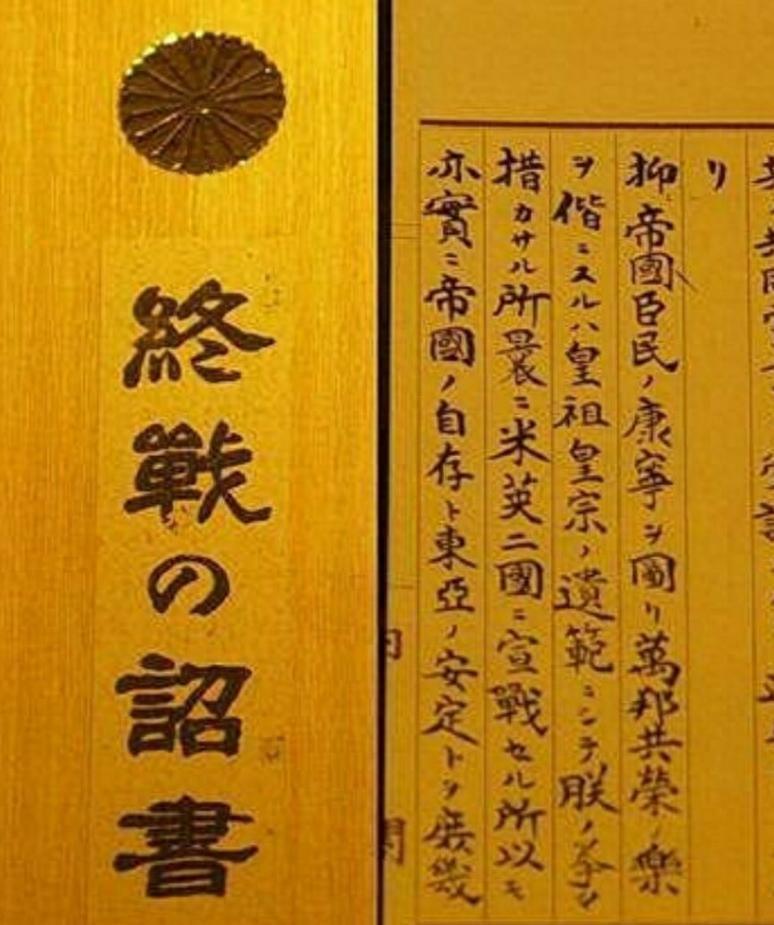 終戰の詔書
リ
抑〻帝國臣民ノ康寧ヲ圖リ萬邦共榮ノ樂
ヲ偕ニスルハ皇祖皇宗ノ遺範ニシテ朕ノ拳々
措カサル所曩ニ米英二國ニ宣戰セル所以モ
亦實ニ帝國ノ自存ト東亞ノ安定トヲ庶幾